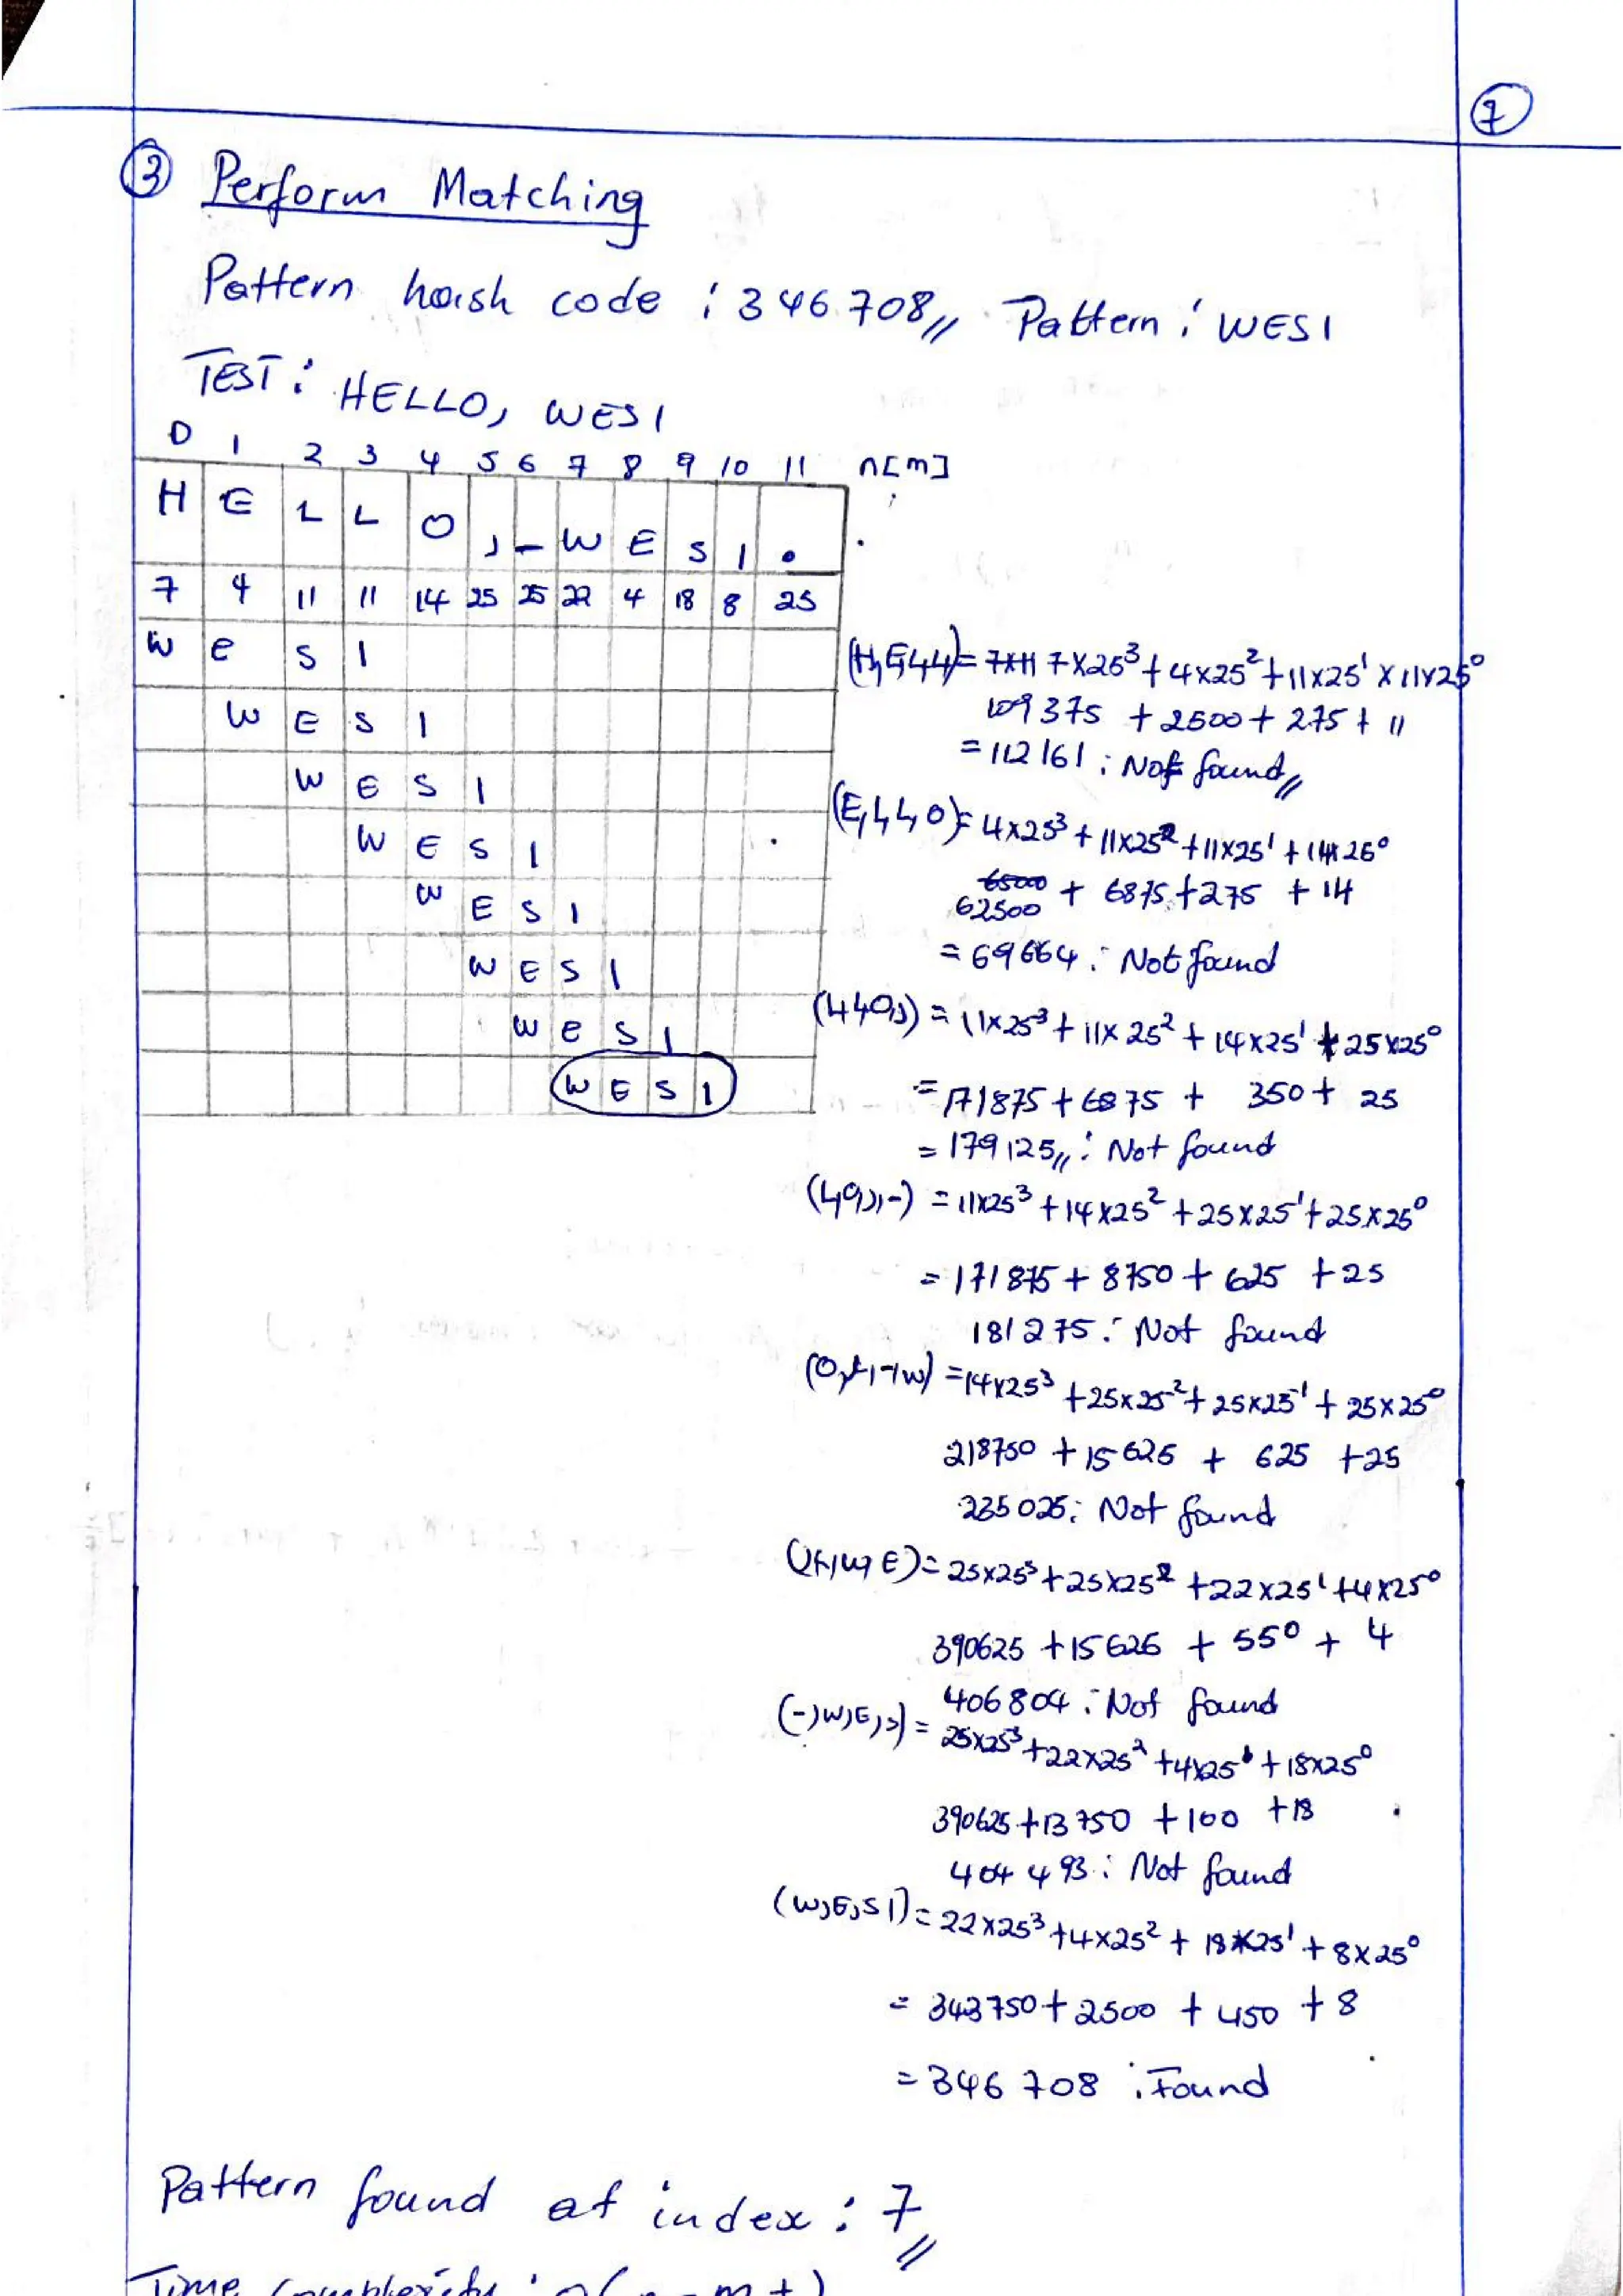 7
③ Perform Matching
Pattern hash code : 346 708// Pattern : WESI
TEST : HELLO, WESI
0 1 2 3 4 5 6 7 8 9 10 11 n[m]
H E L L O , - W E S I .
7 4 11 11 14 25 25 22 4 18 8 25
W e S I
W E S I
W E S I
W E S I
W E S I
W E S I
W e S I
W E S I
(H,E,L,L) = 7x11 7x25³ + 4x25² + 11x25¹ x 11x25⁰
109375 + 2500 + 275 + 11
= 112161 : Not found//
(E,L,L,O) = 4x25³ + 11x25² + 11x25¹ + 14x25⁰
6500
62500 + 6875 + 275 + 14
= 69664 : Not found
(L,L,O,,) = 11x25³ + 11x25² + 14x25¹ + 25x25⁰
= 171875 + 6875 + 350 + 25
= 179125// : Not found
(L,O,,,-) = 11x25³ + 14x25² + 25x25¹ + 25x25⁰
= 171875 + 8750 + 625 + 25
181275 : Not found
(O,,,-,W) = 14x25³ + 25x25² + 25x25¹ + 25x25⁰
218750 + 15625 + 625 + 25
235025 : Not found
(,,-,W,E) = 25x25³ + 25x25² + 22x25¹ + 4x25⁰
390625 + 15625 + 550 + 4
406804 : Not found
(-,W,E,S) = 25x25³ + 22x25² + 4x25¹ + 18x25⁰
390625 + 13750 + 100 + 18
404493 : Not found
(W,E,S I) = 22x25³ + 4x25² + 18x25¹ + 8x25⁰
= 343750 + 2500 + 450 + 8
= 346 708 : Found
Pattern found at index : 7//
Time Complexity :